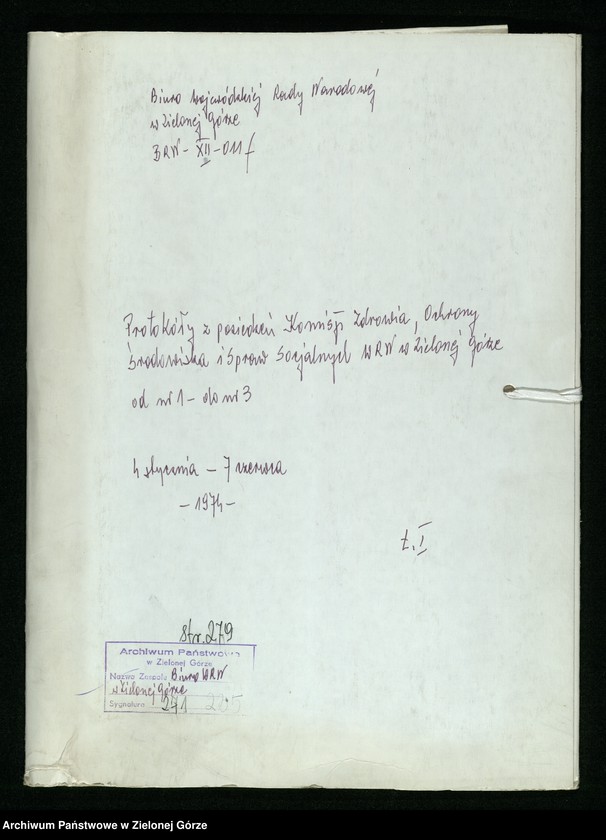 Biuro Wojewódzkiej Rady Narodowej
w Zielonej Górze
BRW-XII-011/
Protokóły z posiedzeń Komisji Zdrowia, Ochrony
Środowiska i Spraw Socjalnych WRN w Zielonej Górze
od nr 1 - do nr 3
4 stycznia - 7 czerwca
-1974-
t. I
str. 279
Archiwum Państwowe
w Zielonej Górze
Nazwa Zespołu Biuro WRN
w Zielonej Górze
Sygnatura 271
Archiwum Państwowe w Zielonej Górze